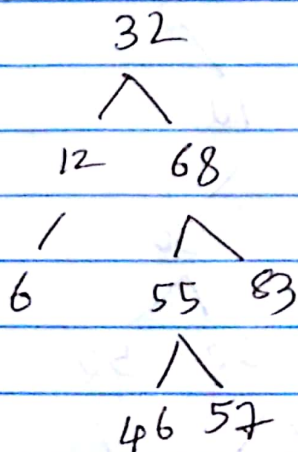 32
12 68
6 55 83
46 57